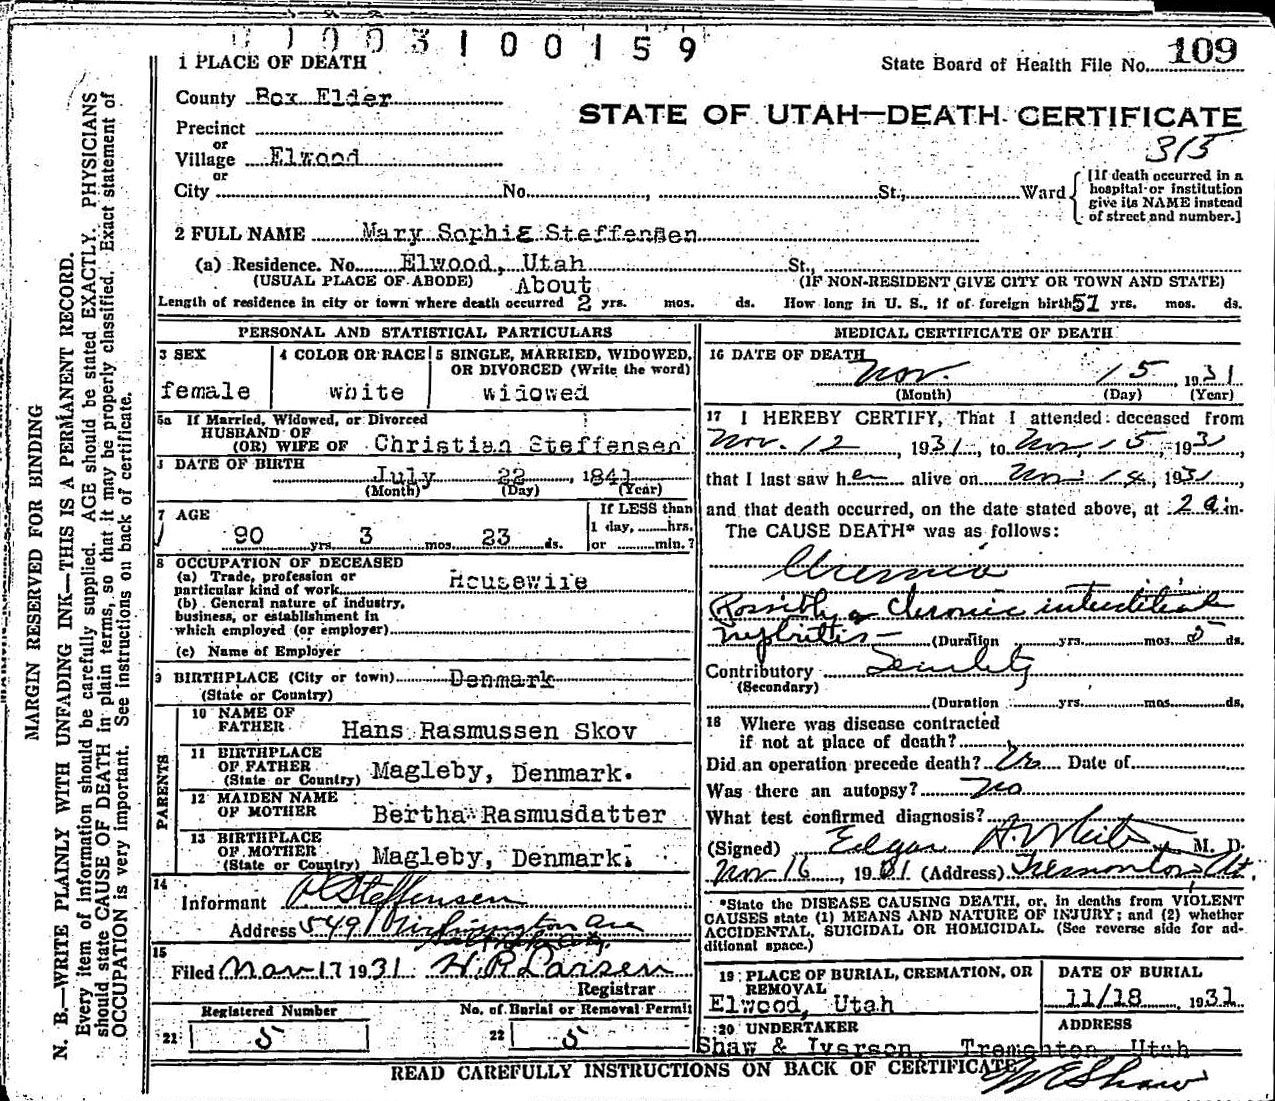 0 1 0 0 3 1 0 0 1 5 9
1 PLACE OF DEATH
State Board of Health File No. 109
County Box Elder
STATE OF UTAH—DEATH CERTIFICATE
Precinct
or
315
Village Elwood
or
City No. , St., Ward
[If death occurred in a
hospital or institution
give its NAME instead
of street and number.]
2 FULL NAME Mary Sophie Steffensen
(a) Residence. No. Elwood, Utah St.,
(USUAL PLACE OF ABODE) (IF NON-RESIDENT GIVE CITY OR TOWN AND STATE)
About
Length of residence in city or town where death occurred 2 yrs. mos. ds. How long in U. S., if of foreign birth 57 yrs. mos. ds.
PERSONAL AND STATISTICAL PARTICULARS
3 SEX
female
4 COLOR OR RACE
white
5 SINGLE, MARRIED, WIDOWED,
OR DIVORCED (Write the word)
widowed
5a If Married, Widowed, or Divorced
HUSBAND OF
(OR) WIFE OF Christian Steffensen
DATE OF BIRTH
July 22, 1841
(Month) (Day) (Year)
7 AGE
90 yrs. 3 mos. 23 ds.
If LESS than
1 day, hrs.
or min.?
8 OCCUPATION OF DECEASED
(a) Trade, profession or
particular kind of work Housewife
(b) General nature of industry,
business, or establishment in
which employed (or employer)
(c) Name of Employer
9 BIRTHPLACE (City or town) Denmark
(State or Country)
PARENTS
10 NAME OF
FATHER Hans Rasmussen Skov
11 BIRTHPLACE
OF FATHER
(State or Country) Magleby, Denmark.
12 MAIDEN NAME
OF MOTHER Bertha Rasmusdatter
13 BIRTHPLACE
OF MOTHER
(State or Country) Magleby, Denmark.
14
Informant P. Steffensen
Address 549 Washington Ave
15
Filed Nov 17 1931 H. P. Larsen
Registrar
Registered Number
21 5
No. of Burial or Removal Permit
22 5
MEDICAL CERTIFICATE OF DEATH
16 DATE OF DEATH
Nov. 15, 1931
(Month) (Day) (Year)
17 I HEREBY CERTIFY, That I attended deceased from
Nov. 12, 1931, to Nov. 15, 1931
that I last saw her alive on Nov. 14, 1931,
and that death occurred, on the date stated above, at 2 a m.
The CAUSE DEATH* was as follows:
Uremia
Possibly a chronic interstitial
nephritis — (Duration yrs. mos. 5 ds.
Contributory Senility
(Secondary)
(Duration yrs. mos. ds.
18 Where was disease contracted
if not at place of death?
Did an operation precede death? No Date of
Was there an autopsy? No
What test confirmed diagnosis?
(Signed) Edgar H White M. D.
Nov 16, 1931 (Address) Tremonton, Ut.
*State the DISEASE CAUSING DEATH, or, in deaths from VIOLENT
CAUSES state (1) MEANS AND NATURE OF INJURY; and (2) whether
ACCIDENTAL, SUICIDAL OR HOMICIDAL. (See reverse side for ad-
ditional space.)
19 PLACE OF BURIAL, CREMATION, OR
REMOVAL
Elwood, Utah
DATE OF BURIAL
11/18, 1931
20 UNDERTAKER
Shaw & Iverson,
ADDRESS
Tremonton Utah
READ CAREFULLY INSTRUCTIONS ON BACK OF CERTIFICATE
W E Shaw
MARGIN RESERVED FOR BINDING
N. B.—WRITE PLAINLY WITH UNFADING INK—THIS IS A PERMANENT RECORD.
Every item of information should be carefully supplied. AGE should be stated EXACTLY. PHYSICIANS
should state CAUSE OF DEATH in plain terms, so that it may be properly classified. Exact statement of
OCCUPATION is very important. See instructions on back of certificate.